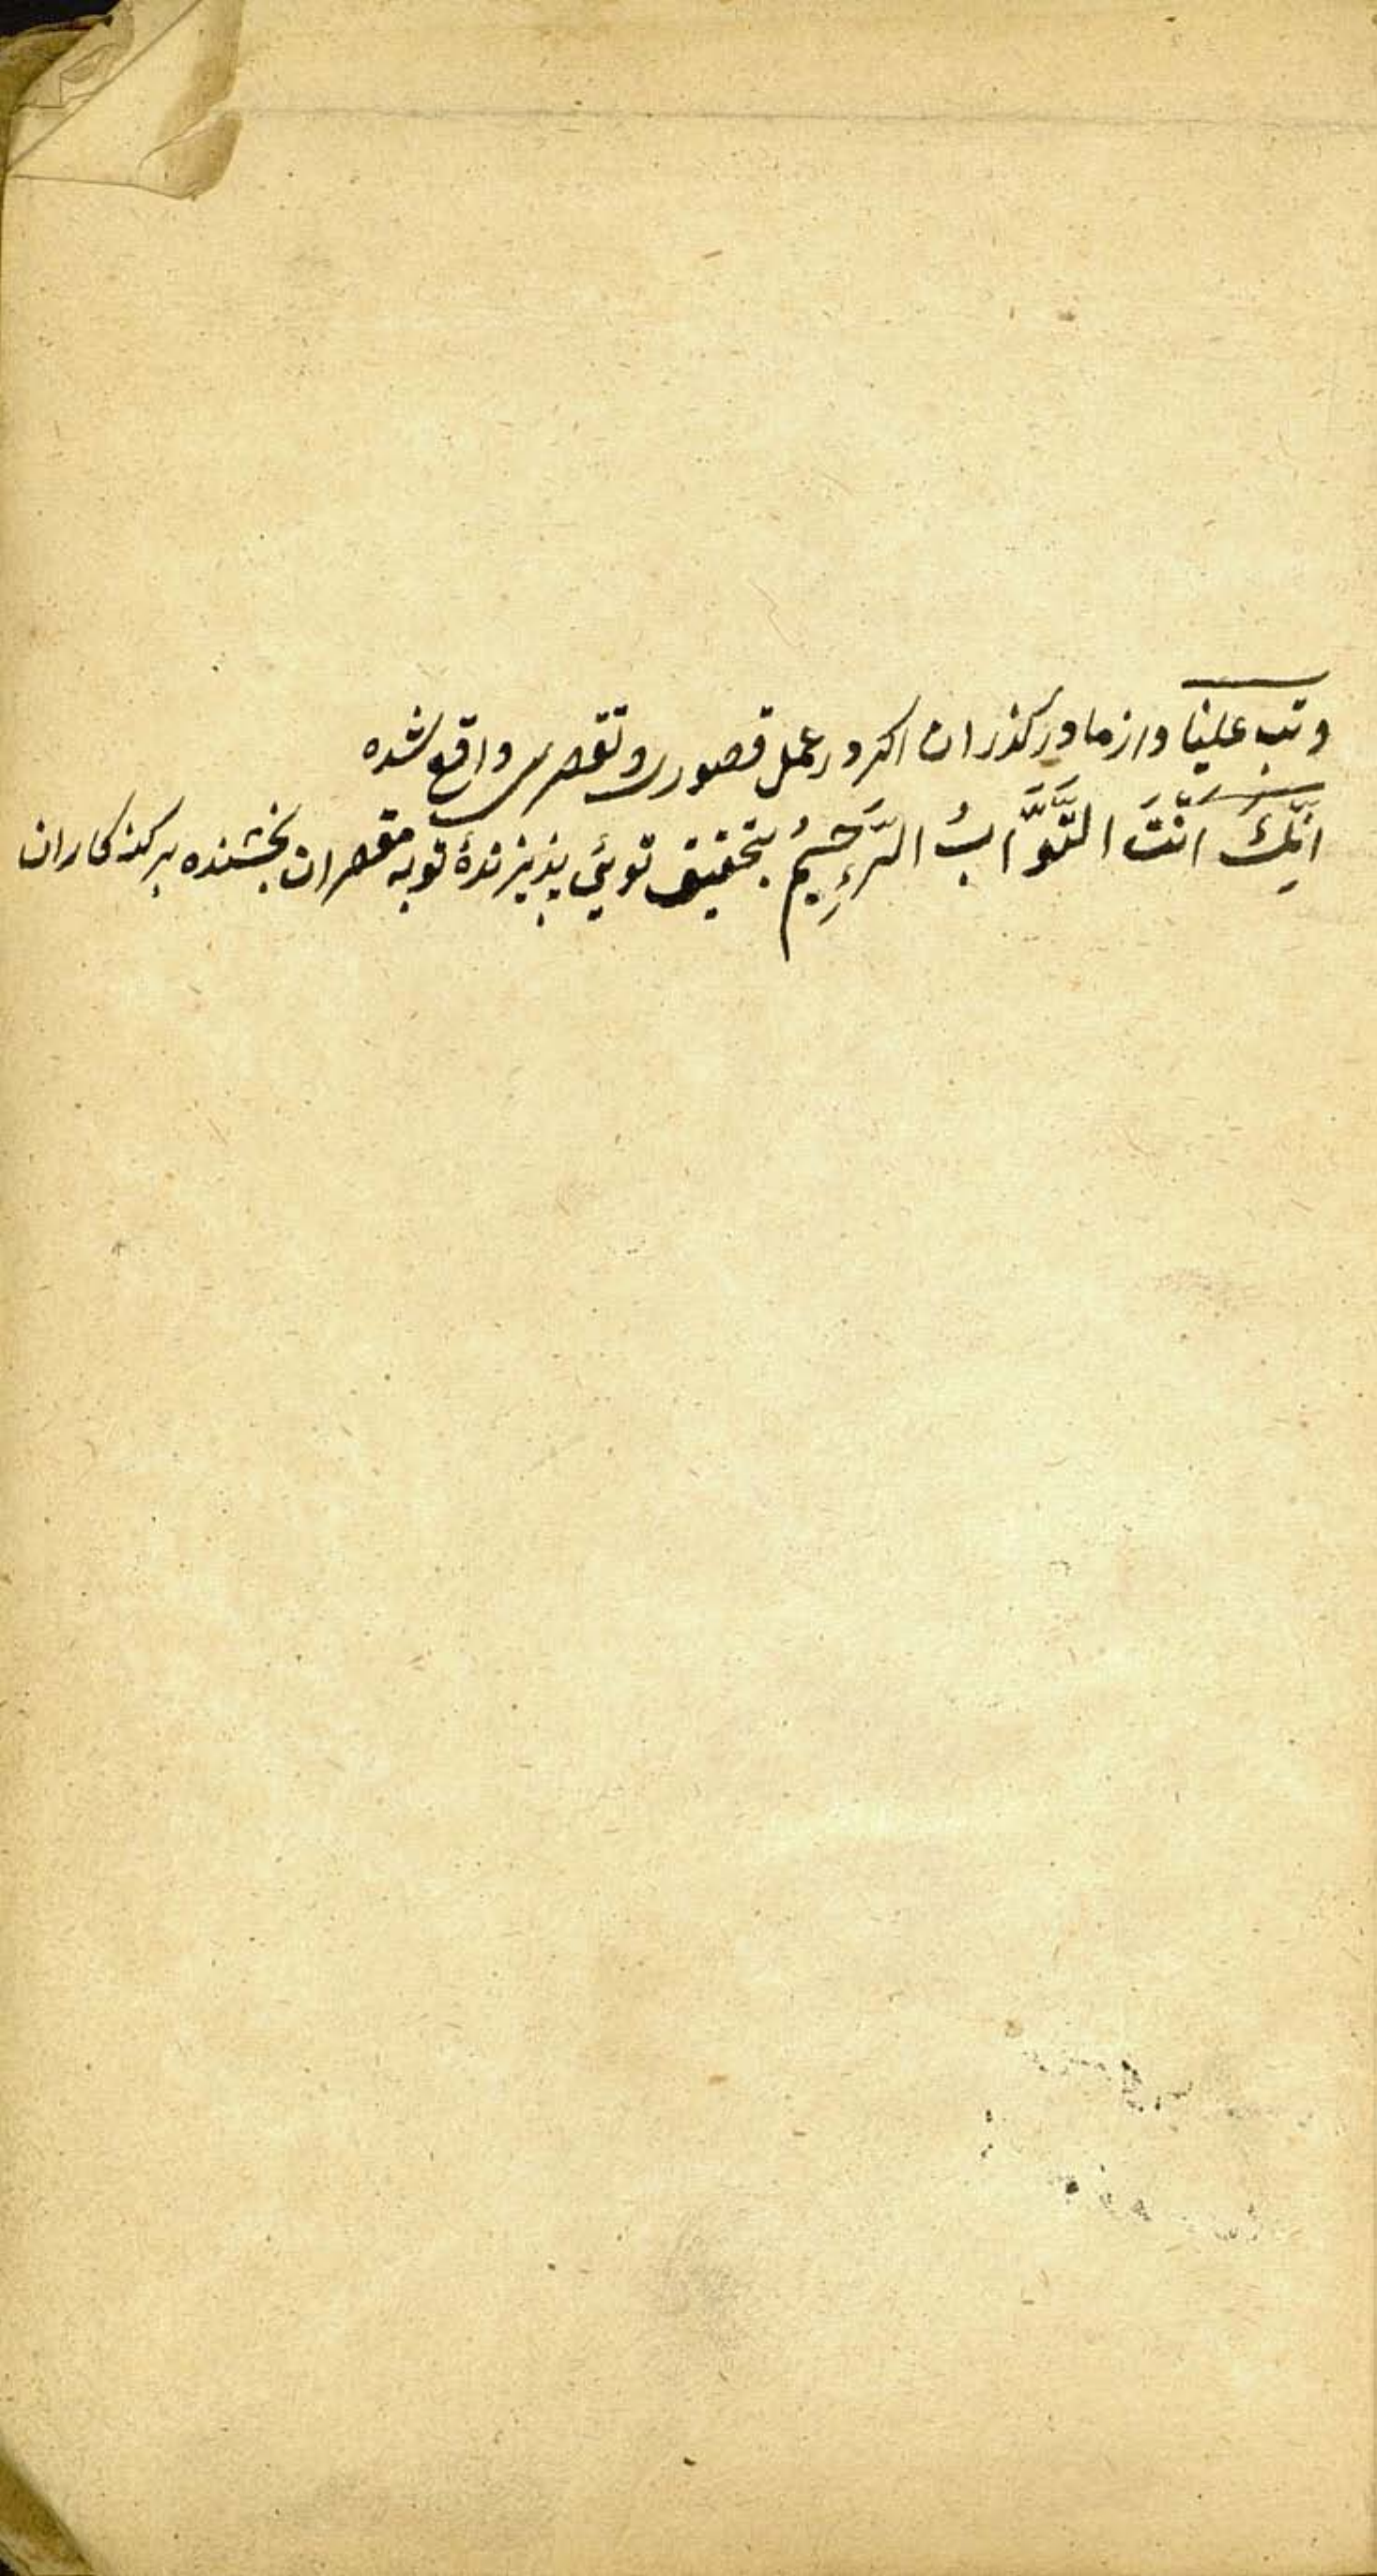 وتب علینا واز ما درکذران اکر در عمل قصوری و تقصیری واقع شده
اِنَّکَ اَنْتَ التَّوَّابُ الرَّحِیمُ بتحقیق توئی پذیرندهٔ توبه مقصران بخشنده بر کنه کاران